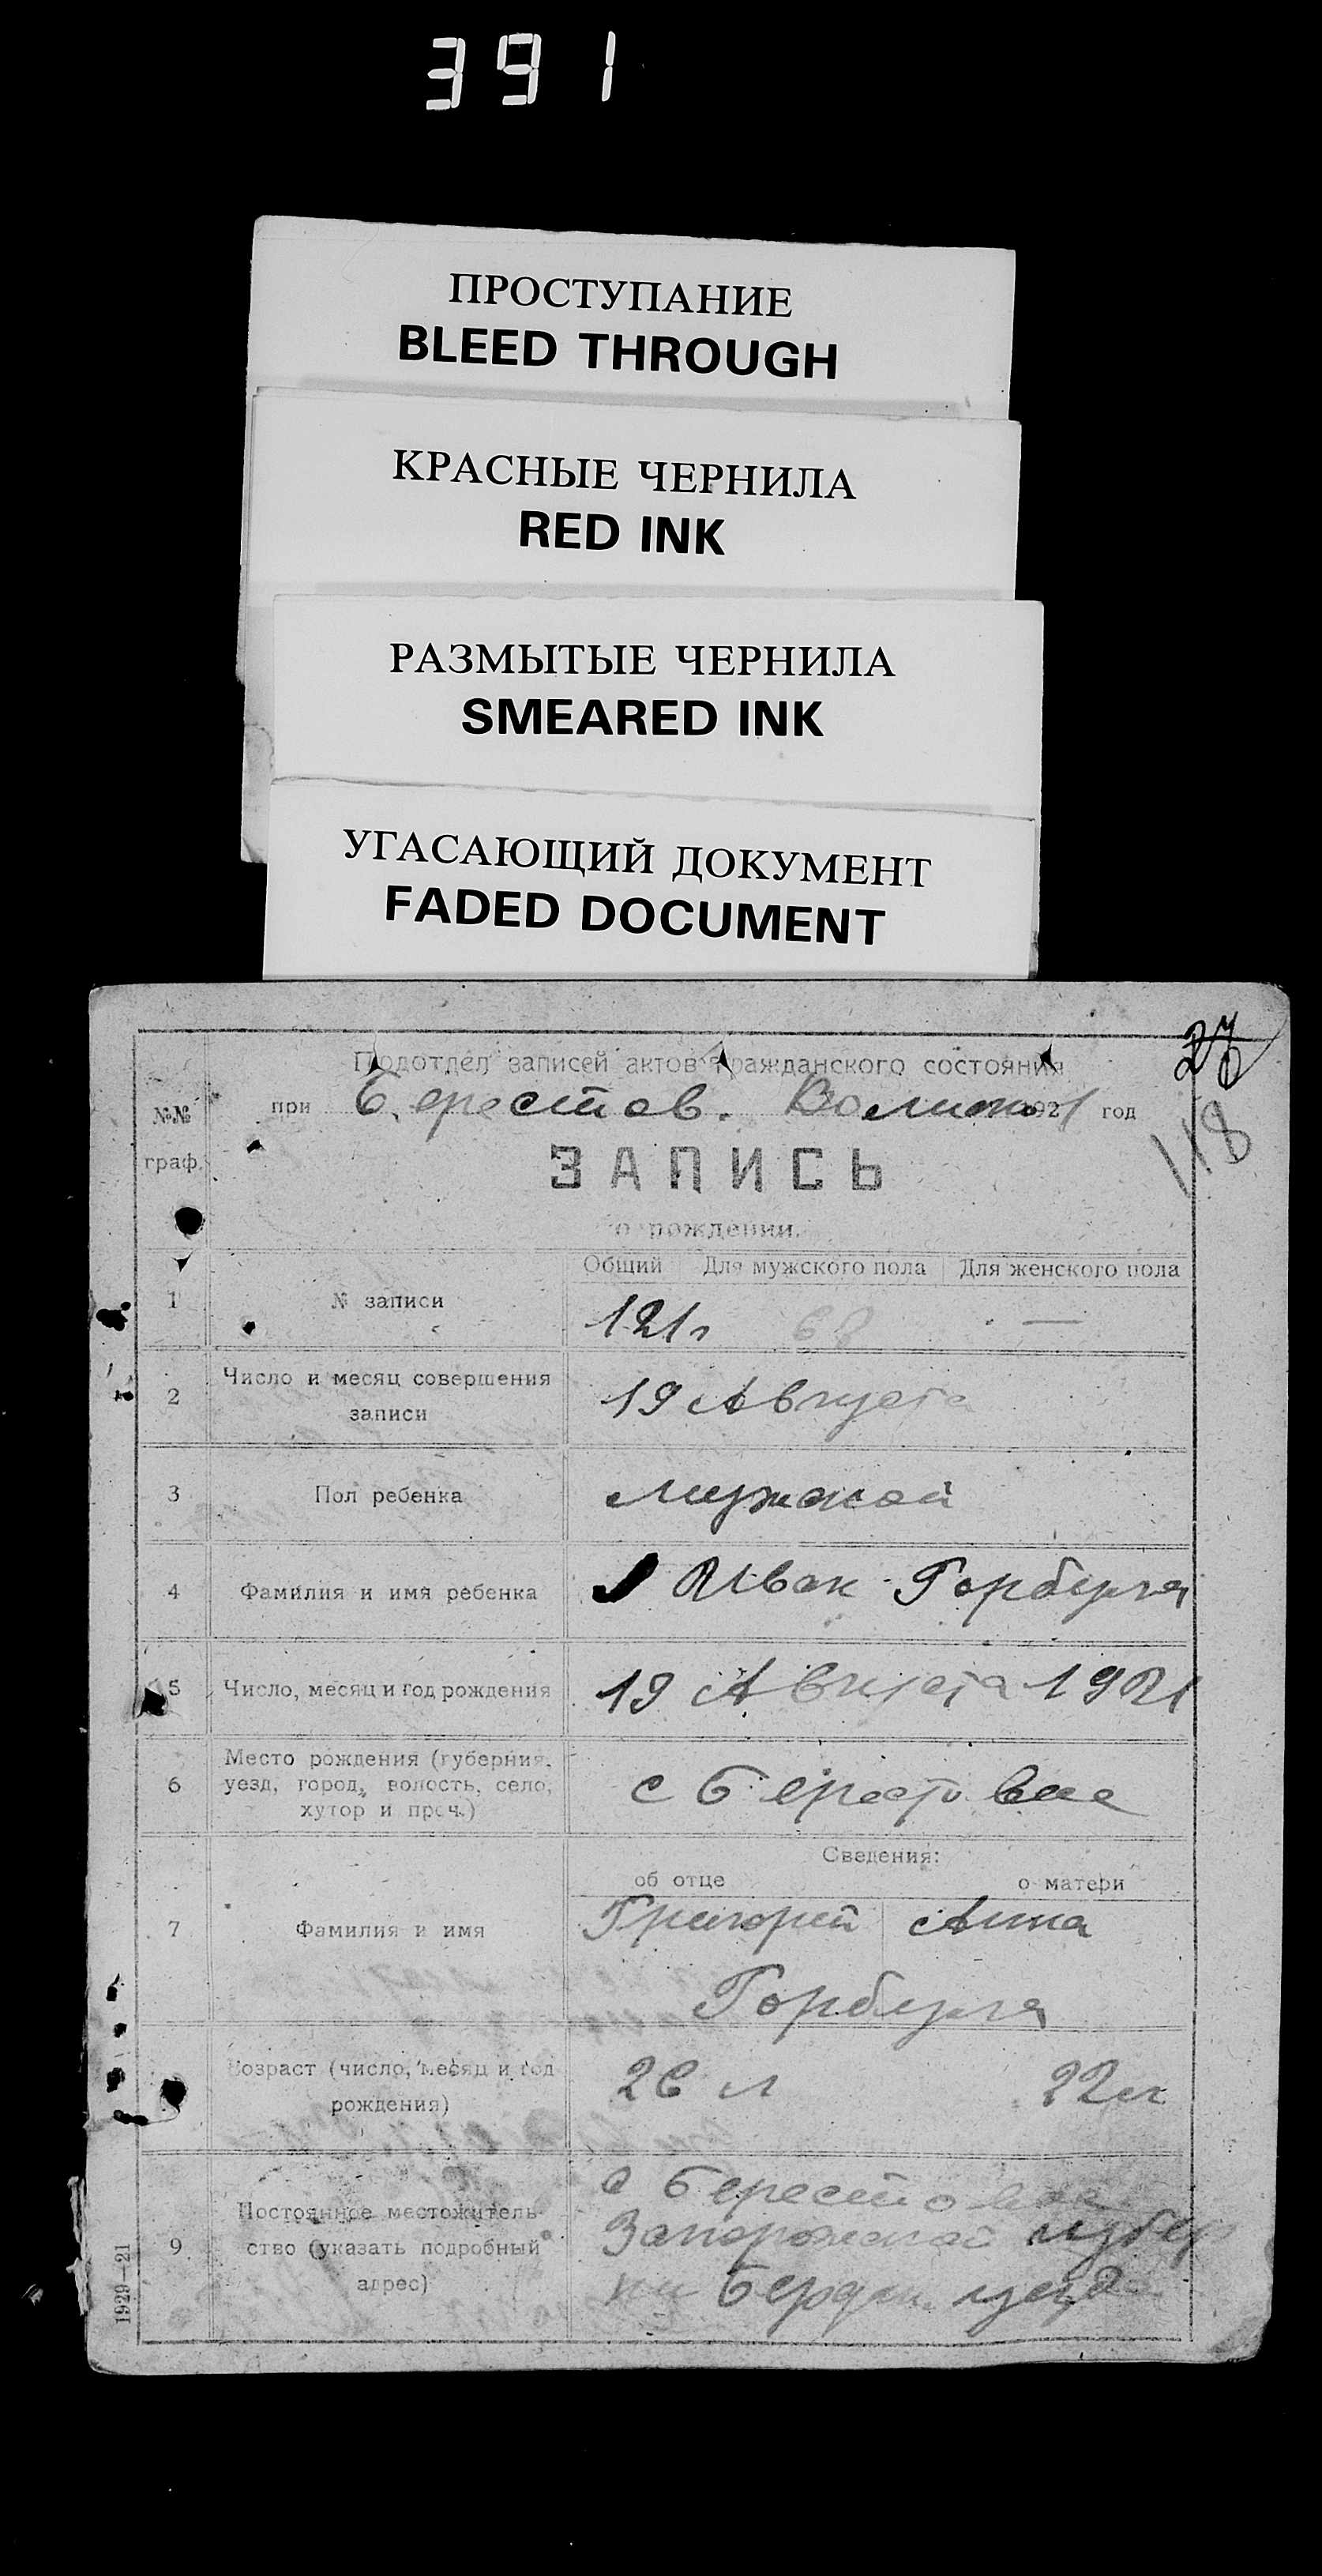 391
ПРОСТУПАНИЕ
BLEED THROUGH
КРАСНЫЕ ЧЕРНИЛА
RED INK
РАЗМЫТЫЕ ЧЕРНИЛА
SMEARED INK
УГАСАЮЩИЙ ДОКУМЕНТ
FADED DOCUMENT
Подотдел записей актов гражданского состояния
при Берестов. 1921 год
118
№№ граф.
ЗАПИСЬ
о рождении.
Общий Для мужского пола Для женского пола
1 № записи 121 68 —
2 Число и месяц совершения записи 19 Августа
3 Пол ребенка мужской
4 Фамилия и имя ребенка Иван Горбуля
5 Число, месяц и год рождения 19 Августа 1921
6 Место рождения (губерния, уезд, город, волость, село, хутор и проч.) с Берестовое
Сведения:
об отце о матери
7 Фамилия и имя Григорий Анна
Горбуля
Возраст (число, месяц и год рождения) 26 л 22 л
9 Постоянное местожительство (указать подробный адрес) с Берестовое
Запорожской губер
нии Бердян. уезда
1929—21